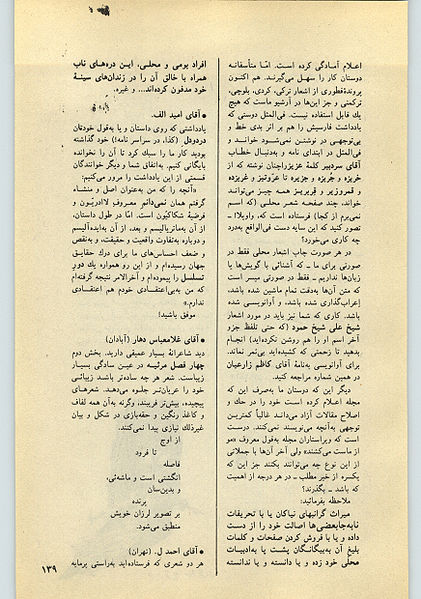 اعلام آمادگی کرده است. امّا متأسفانه
دوستان کار را سهل می‌گیرند. هم اکنون
پروندهٔ قطوری از اشعار ترکی، کردی، بلوچی،
ترکمنی و جز این‌ها در آرشیو ماست که هیچ
یك قابل استفاده نیست. فی‌المثل دوستی که
یادداشت فارسیش را هم بر اثر بدی خط و
بی‌توجهی در نوشتن نمی‌شود خواند و
فی‌المثل در ابتدای نامه و به‌دنبال خطاب
آقای سردبیر کلمهٔ عزیزراچنان نوشته که از
خریزه و جُریزه و جزیره تا عزّوتیز و غریزه
و قمروزیر و قِریریز همه چیز می‌تواند
خواند، چند صفحه شعر محلی (که اسم
نمی‌برم از کجا) فرستاده است که، واویلا!ـ
تصور کنید که این سایه دست فی‌الواقع به‌درد
چه کاری می‌خورد؟
در هر صورت چاپ اشعار محلی فقط در
صورتی برای ما ـ که آشنائی با گویش‌ها یا
زبان‌ها نداریم ـ فقط در صورتی میسر است
که متن آن‌ها به‌دقت تمام ماشین شده باشد،
اِعراب‌گذاری شده باشد، و آوانویسی شده
باشد. کاری که شما نیز باید در مورد اشعار
شیخ علی شیخ حمود (که حتی تلفظ جزو
آخر اسم او را هم روشن نکرده‌اید) انجام
بدهید تا زحمتی که کشیده‌اید بی‌ثمر نماند.
برای آوانویسی به‌نامهٔ آقای کاظم زارعیان
در همین شماره مراجعه کنید.
دیگر این که دوستان ما به‌صرف این که
مجله اعلام کرده است خود را در حك و
اصلاح مقالات آزاد می‌داند غالباً کمترین
توجهی به‌آنچه می‌نویسند نمی‌کنند. درست
است که ویراستاران مجله به‌قول معروف «مو
از ماست می‌کشند» ولی آخر آن‌ها با جملاتی
از این نوع چه می‌توانند بکنند جز این که
یکسره از خیر مطلب ـ در هر درجه از اهمیت
که باشد ـ بگذرند؟
ملاحظه بفرمائید:
میراث گرانبهای نیاکان یا با تحریفات
نابه‌جابعضی‌ها اصالت خود را از دست
داده و یا با فروش کردن صفحات و کلمات
بلیغ آن به‌بیگانگان پشت پا به‌ادبیات
محلی خود زده و یا دانسته و یا ندانسته
افراد بومی و محلی، ایـن دره‌های ناب
همراه با خالق آن را در زندان‌های سینهٔ
خود مدفون کرده‌اند... و غیره.
● آقای امید الف.
یادداشتی که روی داستان و یا به‌قول خودتان
دردودل (کذا، در سراسر نامه!) خود گذاشته
بودید کار ما را سبك کرد تا آن را نخوانده
بایگانی کنیم. به‌اتفاق شما و دیگر خوانندگان
قسمتی از این یادداشت را مرور می‌کنیم:
«آنچه را که من به‌عنوان اصل و منشاء
گرفتم همان نمی‌دانم معروف لاادریّون و
فرضیهٔ شکاکیّون است. امّا در طول داستان،
از آن به‌ماتریالیسم و بعد، از آن به‌ایده‌آلیسم
و دوباره به‌تفاوت واقعیت و حقیقت، و به‌نقص
و ضعف احساس‌های ما برای درك حقایق
جهان رسیده‌ام و از این رو همواره یك دور
تسلسل را پیموده‌ام و آخرالامر نتیجه گرفته‌ام
که من به‌بی‌اعتقادی خودم هم اعتقادی
ندارم.»
موفق باشید!
● آقای غلامعباس دهار (آبادان)
دید شاعرانهٔ بسیار عمیقی دارید. بخش دوم
چهار فصل مرثیـه در عین سادگی بسیار
زیباست. شعر هر چه ساده‌تر باشد زیبائی
خود را عریان‌تر جلوه می‌دهد. شعرهای
پیچیده، بیش‌تر فریبند، وگرنه به‌آن همه لفاف
و کاغذ رنگین و حقه‌بازی در شکل و بیان
غیرذلك نیازی پیدا نمی‌کنند.
از اوج
تا فرود
فاصله
انگشتی است و ماشه‌ئی،
و بدین‌سان
پرنده
بر تصویر لرزان خویش
منطبق می‌شود.
● آقای احمد ل. (تهران)
هر دو شعری که فرستاده‌اید به‌راستی پرمایه
۱۳۹